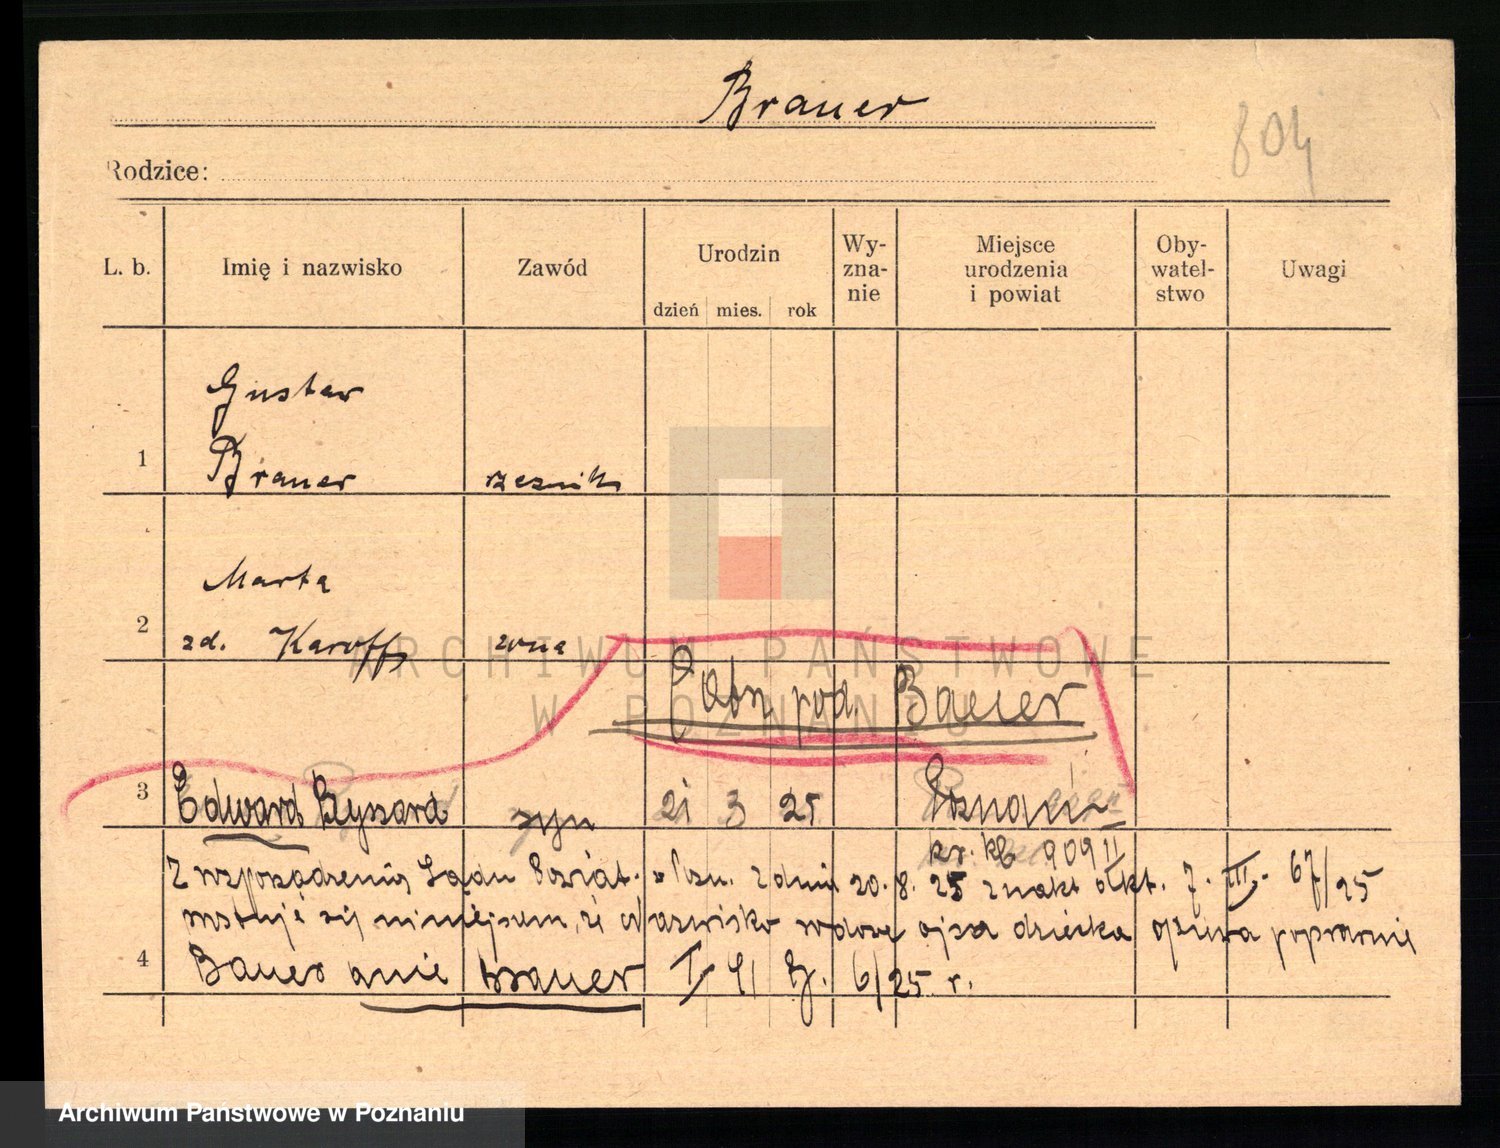 Brauer
804
Rodzice:
L. b. Imię i nazwisko Zawód Urodzin dzień mies. rok Wy-zna-nie Miejsce urodzenia i powiat Oby-watel-stwo Uwagi
Gustav
1 Brauer rzeźnik
Marta
2 zd. Karoff żona
ARCHIWUM PAŃSTWOWE
W POZNANIU
Patrz pod. Bauer
3 Edward Ryszard syn 21 3 25 Poznań
909 II
Z rozporządzenia Sądu Powiat. w Pozn. z dnia 20. 8. 25 znak akt. 7. III. 67/25
niniejszem, iż nazwisko ojca dziecka opiewa poprawnie
4 Bauer a nie Brauer 6/25 r.
Archiwum Państwowe w Poznaniu